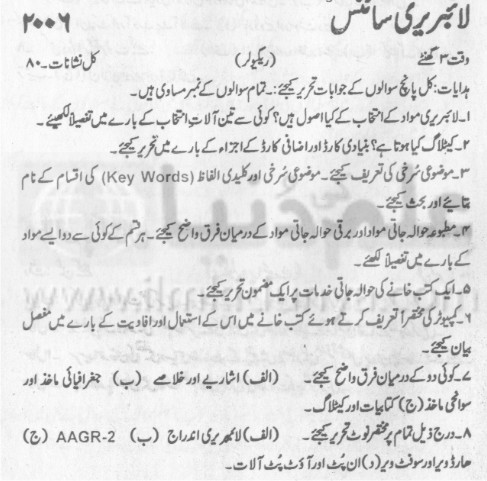 لائبریری سائنس
۲۰۰۶
وقت ۳ گھنٹے (ریگولر) کل نشانات۔۸۰
ہدایات: کل پانچ سوالوں کے جوابات تحریر کیجئے:۔تمام سوالوں کے نمبر مساوی ہیں۔
۱۔لائبریری مواد کے انتخاب کے کیا اصول ہیں؟ کوئی سے تین آلات انتخاب کے بارے میں تفصیلاً لکھیئے۔
۲۔کیٹلاگ کیا ہوتا ہے؟ بنیادی کارڈ اور اضافی کارڈ کے اجزاء کے بارے میں تحریر کیجئے۔
۳۔موضوعی سُرخی کی تعریف کیجئے۔ موضوعی سُرخی اور کلیدی الفاظ (Key Words) کی اقسام کے نام
بتائیے اور بحث کیجئے۔
۴۔مطبوعہ حوالہ جاتی مواد اور برقی حوالہ جاتی مواد کے درمیان فرق واضح کیجئے۔ہر قسم کے کوئی سے دو ایسے مواد
کے بارے میں تفصیلاً لکھئے۔
۵۔ایک کتب خانے کی حوالہ جاتی خدمات پر ایک مضمون تحریر کیجئے۔
۶۔کمپیوٹر کی مختصراً تعریف کرتے ہوئے کتب خانے میں اس کے استعمال اور افادیت کے بارے میں مفصل
بیان کیجئے۔
۷۔کوئی دو کے درمیان فرق واضح کیجئے۔ (الف) اشاریے اور خلاصے (ب) جغرافیائی ماخذ اور
سوانحی ماخذ (ج) کتابیات اور کیٹلاگ۔
۸۔درج ذیل تمام پر مختصر نوٹ تحریر کیجئے۔ (الف) لائبریری اندراج (ب) AAGR-2 (ج)
ہارڈ ویر اور سوفٹ ویر (د) ان پٹ اور آؤٹ پٹ آلات۔